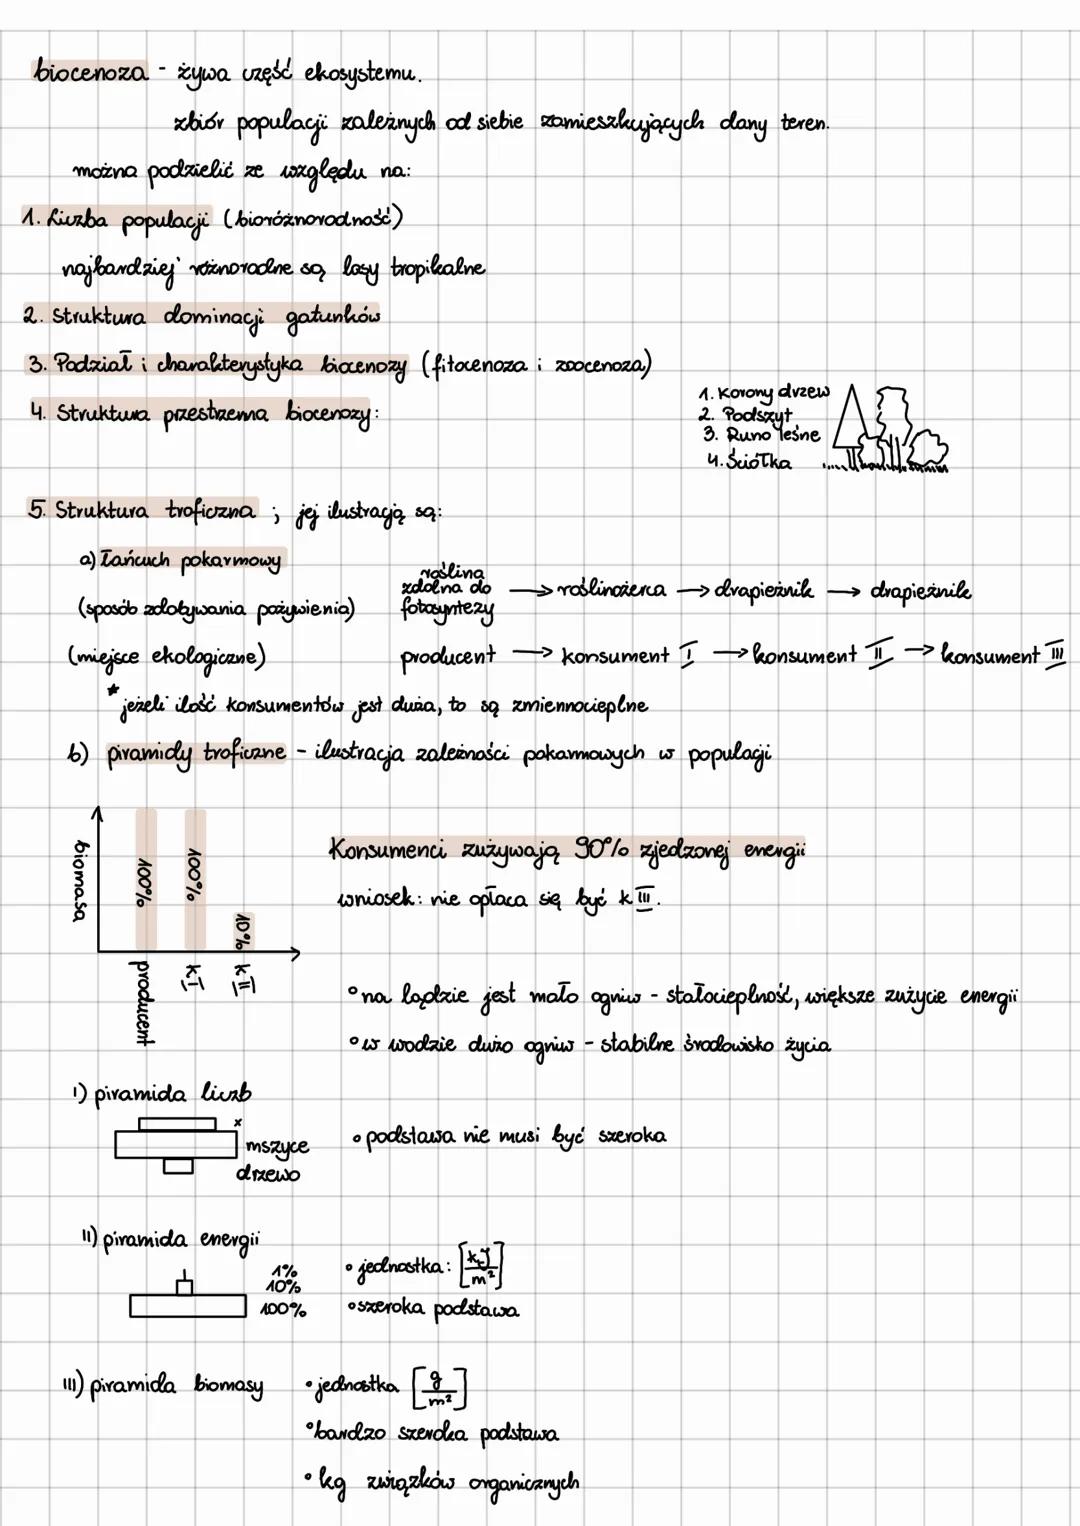 biocenoza - żywa część ekosystemu.
zbiór populacji zależnych od siebie zamieszkujących dany teren.
można podzielić ze względu na:
1. Liczba populacji (bioróżnorodność)
najbardziej różnorodne są lasy tropikalne
2. Struktura dominacji gatunków
3. Podział i charakterystyka biocenozy (fitocenoza i zoocenoza)
4. Struktura przestrzenna biocenozy:
1. Korony drzew
2. Podszyt
3. Runo leśne
4. Ściółka
5. Struktura troficzna ; jej ilustracją są:
a) łańcuch pokarmowy
(sposób zdobywania pożywienia)
roślina
zdolna do
fotosyntezy
→ roślinożerca → drapieżnik → drapieżnik
(miejsce ekologiczne) producent → konsument I → konsument II → konsument III
* jeżeli ilość konsumentów jest duża, to są zmiennocieplne
b) piramidy troficzne - ilustracja zależności pokarmowych w populacji
biomasa
100%
100%
10%
producent
k I
k II
Konsumenci zużywają 90% zjedzonej energii
wniosek: nie opłaca się być k III.
° na lądzie jest mało ogniw - stałocieplność, większe zużycie energii
° w wodzie dużo ogniw - stabilne środowisko życia
I) piramida liczb
x
mszyce
drzewo
• podstawa nie musi być szeroka
II) piramida energii
1%
10%
100%
• jednostka: [kJ/m²]
° szeroka podstawa
III) piramida biomasy
• jednostka [g/m²]
° bardzo szeroka podstawa
• kg związków organicznych